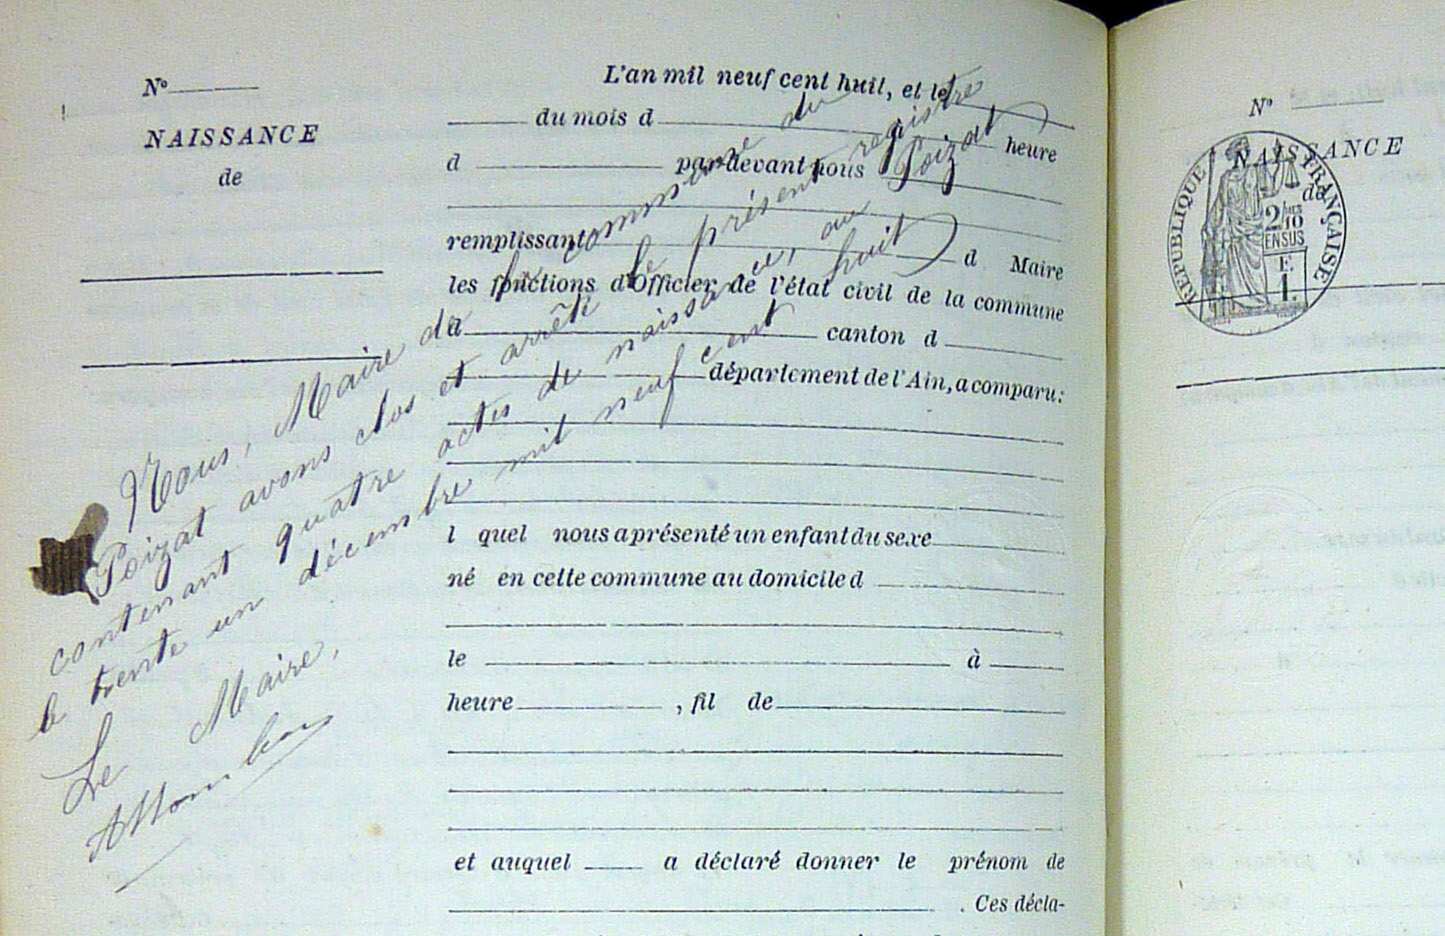 N°
NAISSANCE
de
L'an mil neuf cent huit, et le
du mois d
heure
d par-devant nous
remplissant
d Maire
les fonctions d'Officier de l'état civil de la commune
d canton d
département de l'Ain, a comparu:
l quel nous a présenté un enfant du sexe
né en cette commune au domicile d
le à
heure , fil de
et auquel a déclaré donner le prénom de
. Ces décla-
Nous, Maire de la commune du
Poizat avons clos et arrêté le présent registre
contenant quatre actes de naissance, au Poizat
le trente un décembre mil neuf cent huit
Le Maire,
N°
NAISSANCE
de
RÉPUBLIQUE FRANÇAISE
2/10
EN SUS